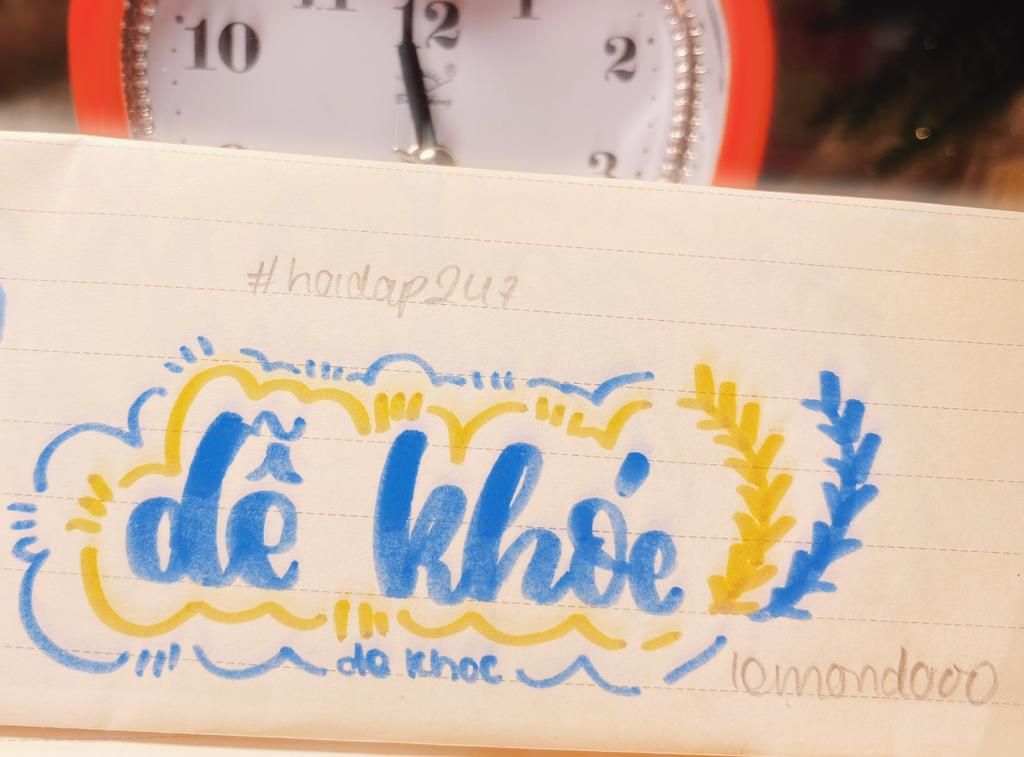 10 11 12 1 2
3
#hoidap247
dễ khóc
de khoc
lemondooo